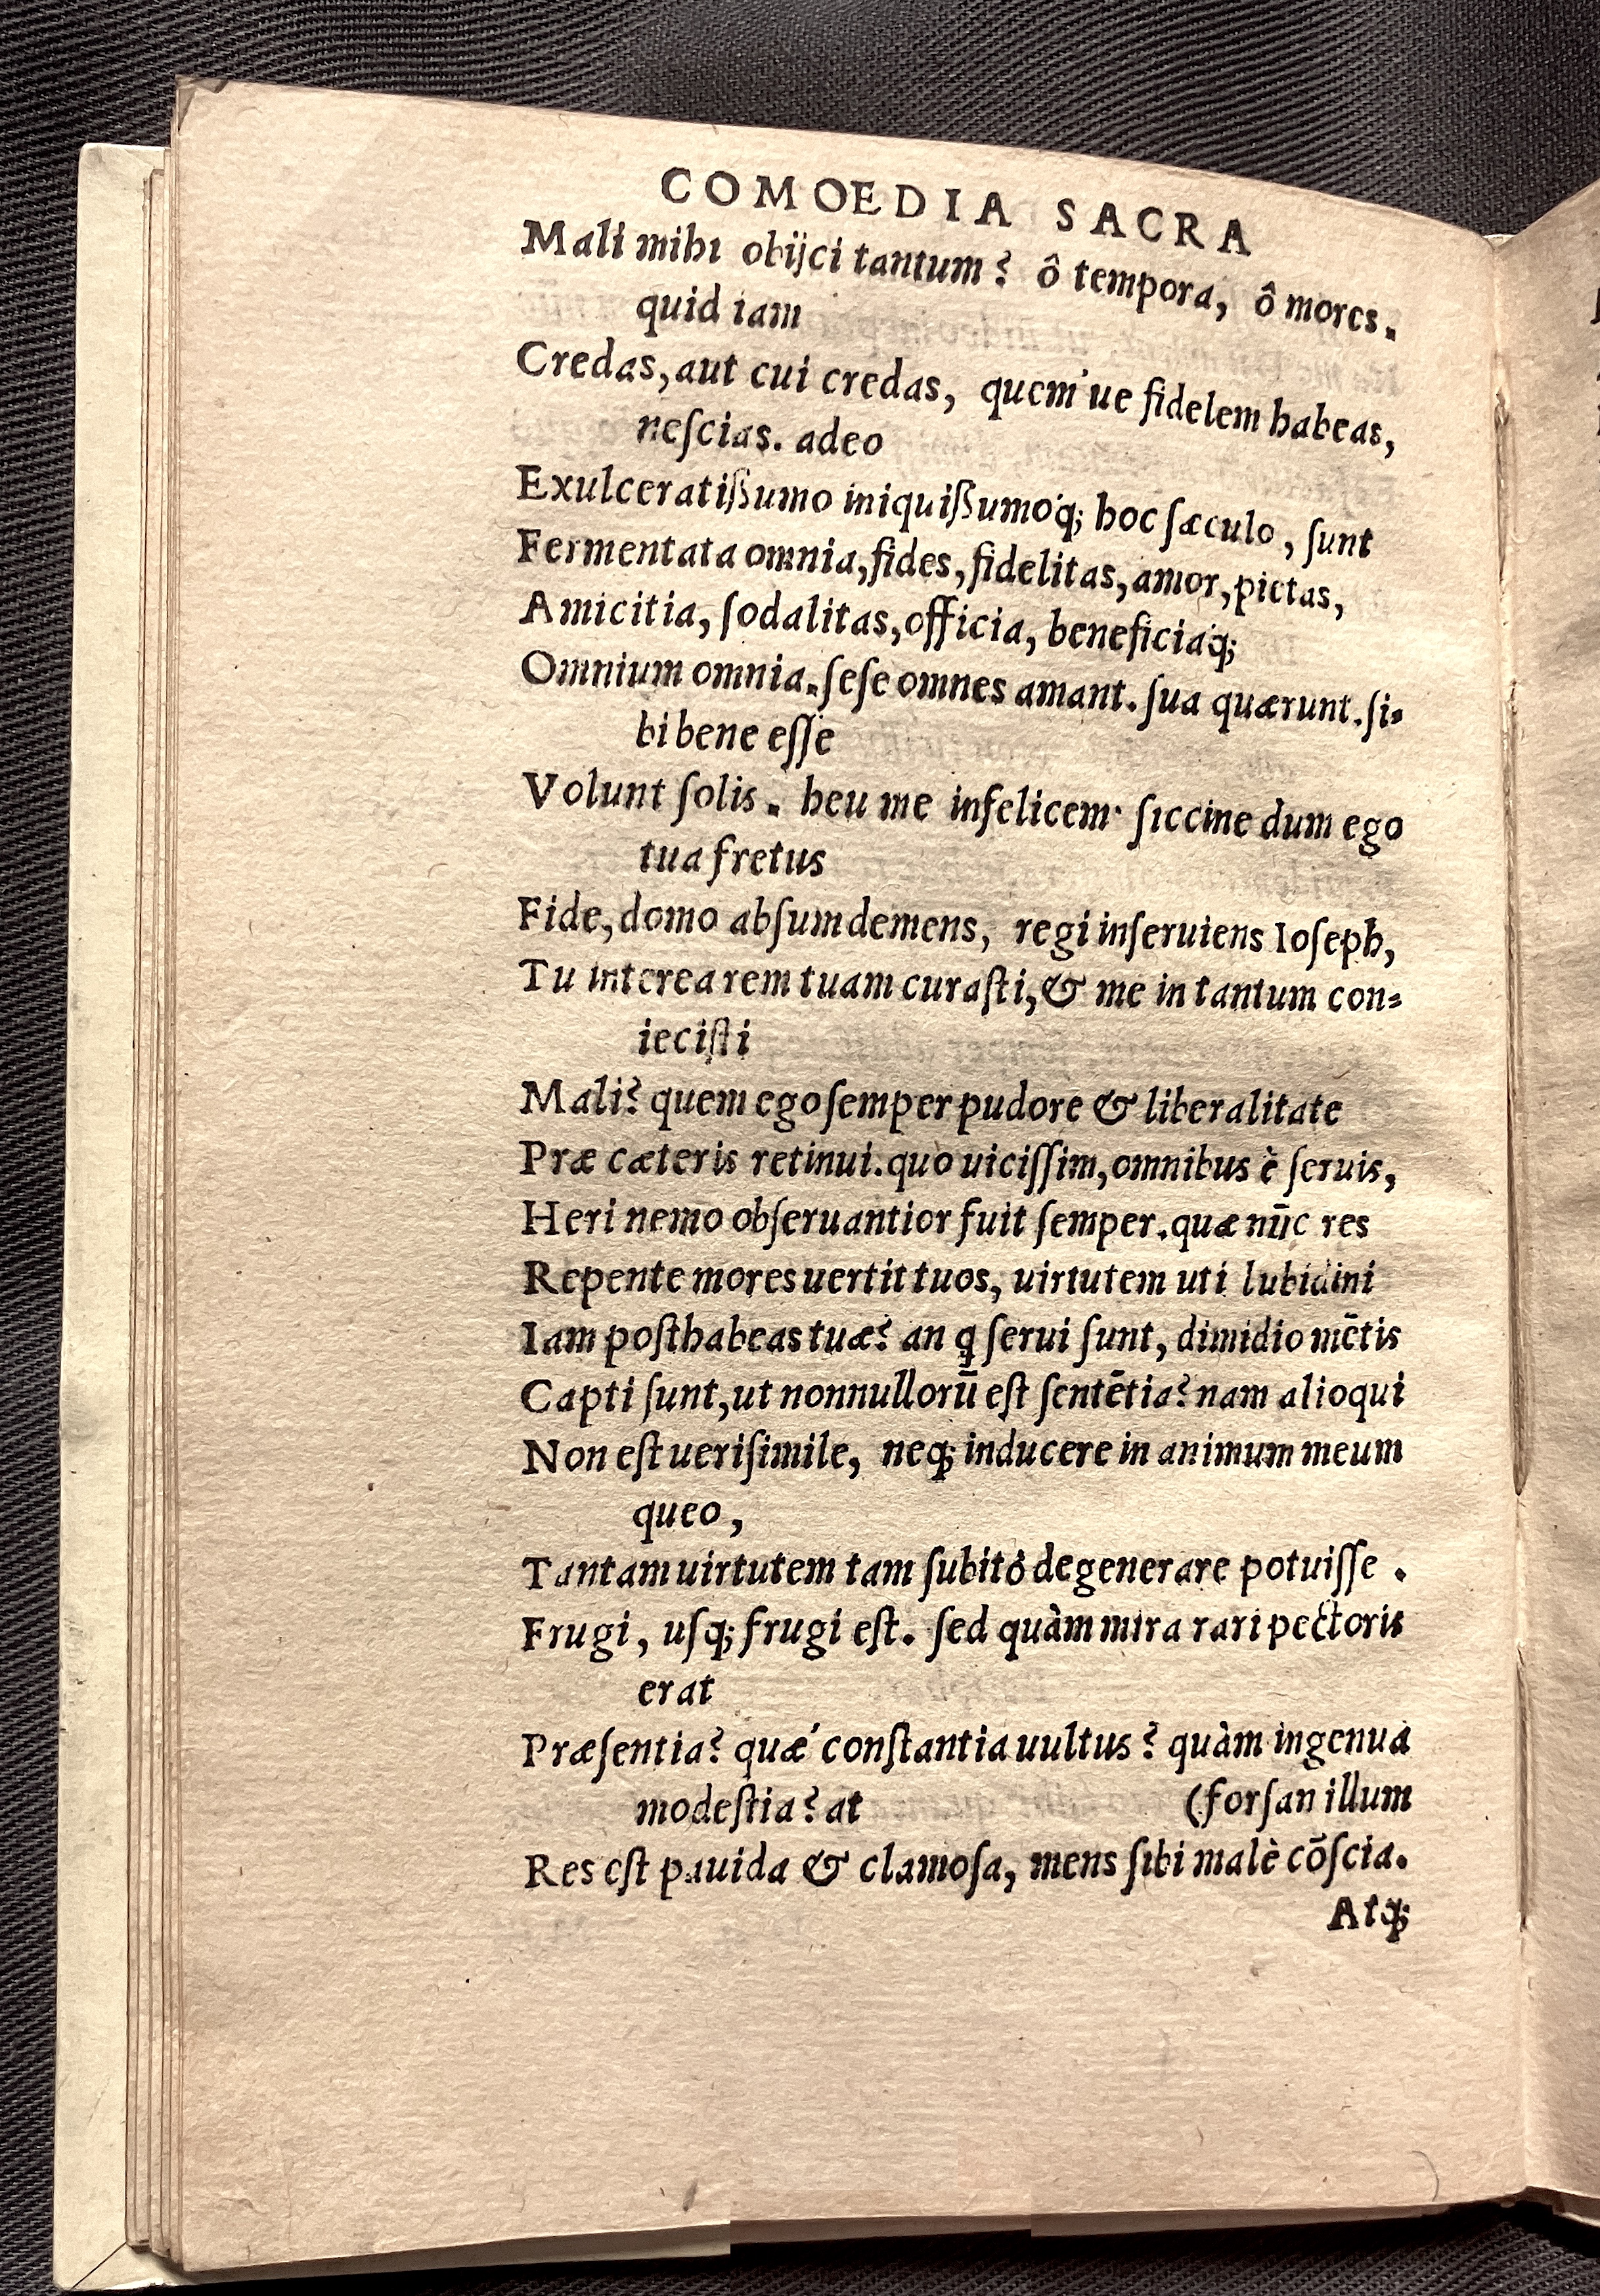 COMOEDIA SACRA
Mali mihi obijci tantum? ô tempora, ô mores.
quid iam
Credas, aut cui credas, quem'ue fidelem habeas,
neſcias. adeo
Exulceratißumo iniquißumoq́; hoc ſæculo, ſunt
Fermentata omnia, fides, fidelitas, amor, pietas,
Amicitia, ſodalitas, officia, beneficiaq́;
Omnium omnia. ſeſe omnes amant. ſua quærunt. ſi-
bi bene eſſe
Volunt ſolis. heu me infelicem· ſiccine dum ego
tua fretus
Fide, domo abſum demens, regi inſeruiens Ioſeph,
Tu interea rem tuam curaſti, & me in tantum con-
ieciſti
Mali? quem ego ſemper pudore & liberalitate
Præ cæteris retinui. quo uiciſſim, omnibus è ſeruis,
Heri nemo obſeruantior fuit ſemper. quæ nūc res
Repente mores uertit tuos, uirtutem uti lubidini
Iam poſthabeas tuæ? an ꝗ ſerui ſunt, dimidio mētis
Capti ſunt, ut nonnullorū eſt ſentētia? nam alioqui
Non eſt ueriſimile, neq; inducere in animum meum
queo,
Tantam uirtutem tam ſubitò degenerare potuiſſe.
Frugi, uſq; frugi eſt. ſed quàm mira rari pectoris
erat
Præſentia? quæ' conſtantia uultus? quàm ingenua
modeſtia? at (forſan illum
Res eſt pauida & clamoſa, mens ſibi malè cōſcia.
Atq;